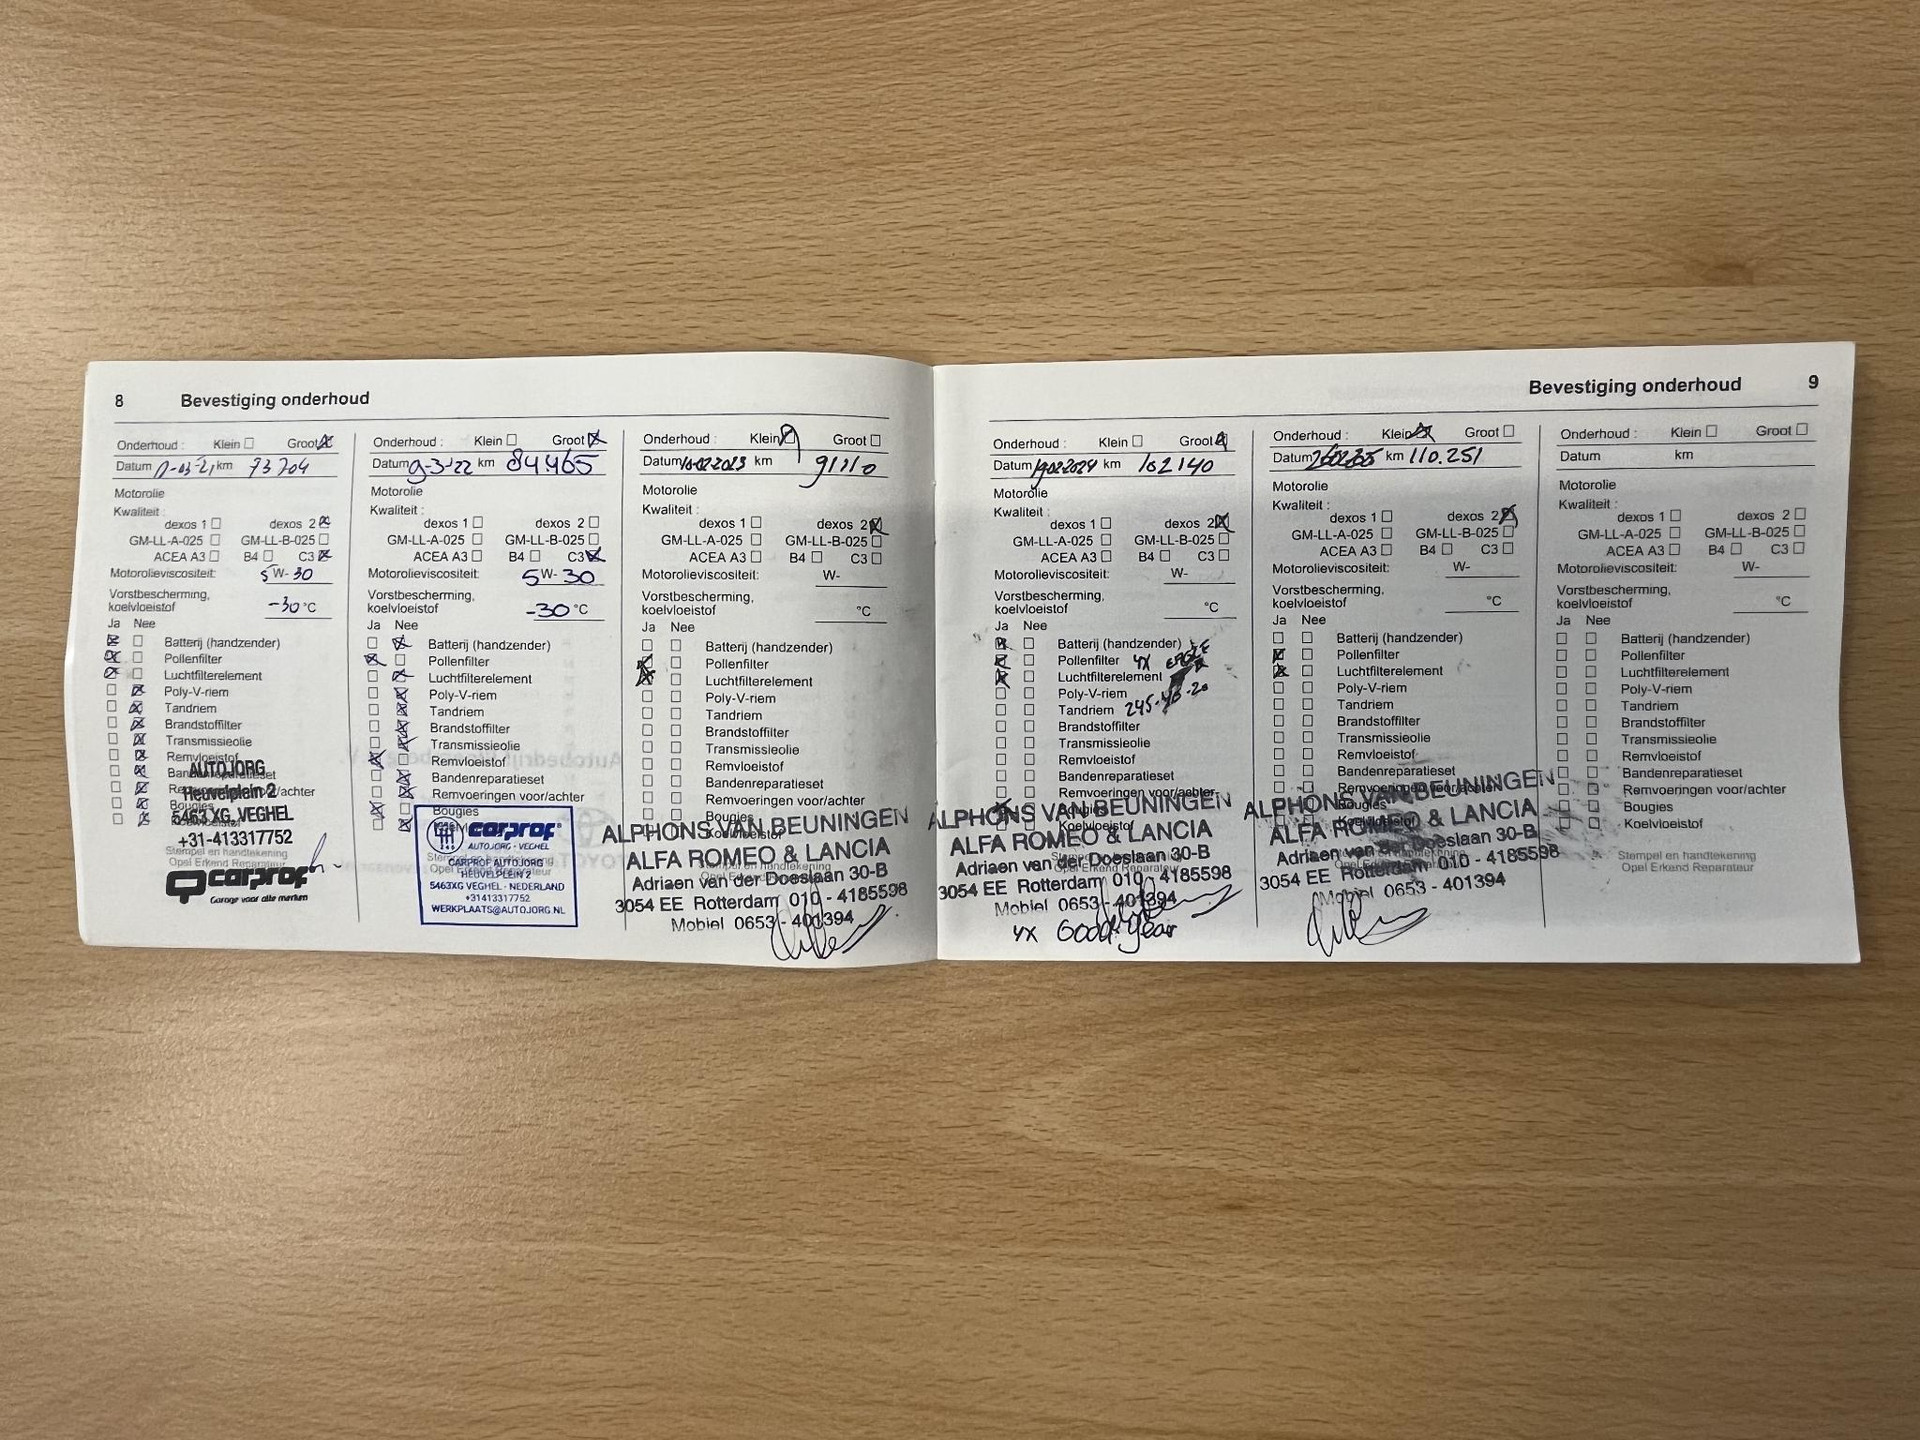 8 Bevestiging onderhoud
Onderhoud : Klein Groot
Datum km 73704
Motorolie
Kwaliteit :
dexos 1 dexos 2
GM-LL-A-025 GM-LL-B-025
ACEA A3 B4 C3
Motorolieviscositeit: 5 W- 30
Vorstbescherming,
koelvloeistof -30 °C
Ja Nee
Batterij (handzender)
Pollenfilter
Luchtfilterelement
Poly-V-riem
Tandriem
Brandstoffilter
Transmissieolie
Remvloeistof
Bandenreparatieset
Remvoeringen voor/achter
Bougies
Koelvloeistof
AUTOJORG
Heuvelplein 2
5463 XG VEGHEL
+31-413317752
Stempel en handtekening
Opel Erkend Reparateur
carprof
Garage voor alle merken
Onderhoud : Klein Groot
Datum 9-3-22 km 84465
Motorolie
Kwaliteit :
dexos 1 dexos 2
GM-LL-A-025 GM-LL-B-025
ACEA A3 B4 C3
Motorolieviscositeit: 5 W- 30
Vorstbescherming,
koelvloeistof -30 °C
Ja Nee
Batterij (handzender)
Pollenfilter
Luchtfilterelement
Poly-V-riem
Tandriem
Brandstoffilter
Transmissieolie
Remvloeistof
Bandenreparatieset
Remvoeringen voor/achter
Bougies
Koelvloeistof
carprof
AUTOJORG - VEGHEL
Stempel en handtekening
Opel Erkend Reparateur
CARPROF AUTOJORG
HEUVELPLEIN 2
5463XG VEGHEL - NEDERLAND
+31413317752
WERKPLAATS@AUTOJORG.NL
Onderhoud : Klein Groot
Datum 10-02-2023 km 91110
Motorolie
Kwaliteit :
dexos 1 dexos 2
GM-LL-A-025 GM-LL-B-025
ACEA A3 B4 C3
Motorolieviscositeit: W-
Vorstbescherming,
koelvloeistof °C
Ja Nee
Batterij (handzender)
Pollenfilter
Luchtfilterelement
Poly-V-riem
Tandriem
Brandstoffilter
Transmissieolie
Remvloeistof
Bandenreparatieset
Remvoeringen voor/achter
Bougies
Koelvloeistof
ALPHONS VAN BEUNINGEN
ALFA ROMEO & LANCIA
Stempel en handtekening
Opel Erkend Reparateur
Adriaen van der Doeslaan 30-B
3054 EE Rotterdam 010 - 4185598
Mobiel 0653 - 401394
Bevestiging onderhoud 9
Onderhoud : Klein Groot
Datum 19022024 km 102140
Motorolie
Kwaliteit :
dexos 1 dexos 2
GM-LL-A-025 GM-LL-B-025
ACEA A3 B4 C3
Motorolieviscositeit: W-
Vorstbescherming,
koelvloeistof °C
Ja Nee
Batterij (handzender)
Pollenfilter 4X
Luchtfilterelement
Poly-V-riem
Tandriem 245-40-20
Brandstoffilter
Transmissieolie
Remvloeistof
Bandenreparatieset
Remvoeringen voor/achter
Bougies
Koelvloeistof
ALPHONS VAN BEUNINGEN
ALFA ROMEO & LANCIA
Stempel en handtekening
Opel Erkend Reparateur
Adriaen van der Doeslaan 30-B
3054 EE Rotterdam 010 - 4185598
Mobiel 0653 - 401394
4X Good year
Onderhoud : Klein Groot
Datum km 110.251
Motorolie
Kwaliteit :
dexos 1 dexos 2
GM-LL-A-025 GM-LL-B-025
ACEA A3 B4 C3
Motorolieviscositeit: W-
Vorstbescherming,
koelvloeistof °C
Ja Nee
Batterij (handzender)
Pollenfilter
Luchtfilterelement
Poly-V-riem
Tandriem
Brandstoffilter
Transmissieolie
Remvloeistof
Bandenreparatieset
Remvoeringen voor/achter
Bougies
Koelvloeistof
ALPHONS VAN BEUNINGEN
ALFA ROMEO & LANCIA
Stempel en handtekening
Opel Erkend Reparateur
Adriaen van der Doeslaan 30-B
3054 EE Rotterdam 010 - 4185598
Mobiel 0653 - 401394
Onderhoud : Klein Groot
Datum km
Motorolie
Kwaliteit :
dexos 1 dexos 2
GM-LL-A-025 GM-LL-B-025
ACEA A3 B4 C3
Motorolieviscositeit: W-
Vorstbescherming,
koelvloeistof °C
Ja Nee
Batterij (handzender)
Pollenfilter
Luchtfilterelement
Poly-V-riem
Tandriem
Brandstoffilter
Transmissieolie
Remvloeistof
Bandenreparatieset
Remvoeringen voor/achter
Bougies
Koelvloeistof
Stempel en handtekening
Opel Erkend Reparateur